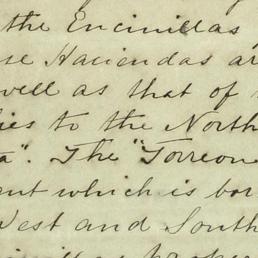 the Encinillas
se Haciendas ar
well as that of
ies to the North
a". The "Torreon
ent which is bor
West and South